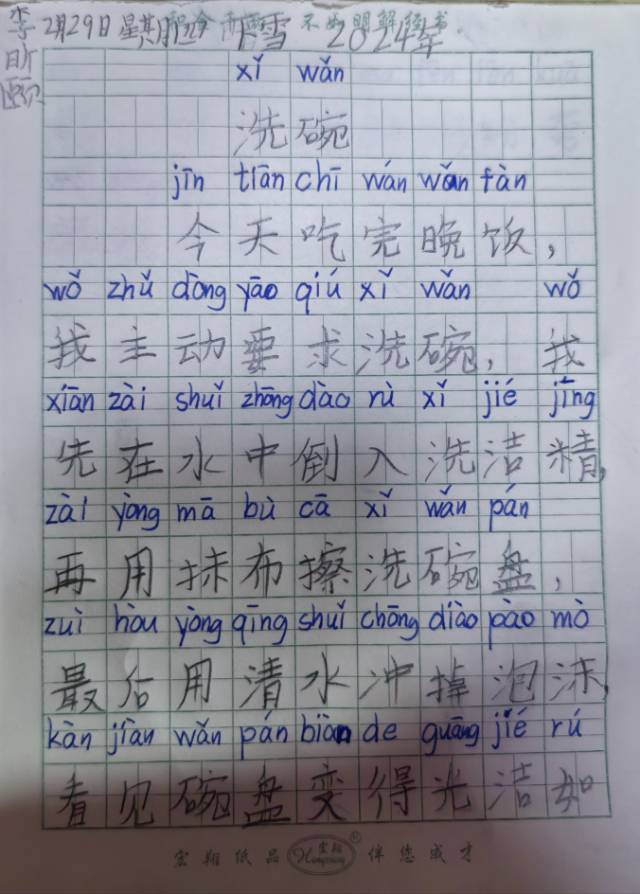 2月29日 星期四 下雪 2024年
xǐ wǎn
洗碗
jīn tiān chī wán wǎn fàn
今天吃完晚饭，
wǒ zhǔ dōng yāo qiú xǐ wǎn wǒ
我主动要求洗碗，我
xiān zài shuǐ zhōng dào rù xǐ jié jīng
先在水中倒入洗洁精，
zài yòng mā bù cā xǐ wǎn pán
再用抹布擦洗碗盘，
zuì hòu yòng qīng shuǐ chōng diào pào mò
最后用清水冲掉泡沫，
kàn jiàn wǎn pán biàn de guāng jié rú
看见碗盘变得光洁如
宏翔纸品 宏翔 Hongxiang ® 伴您成才